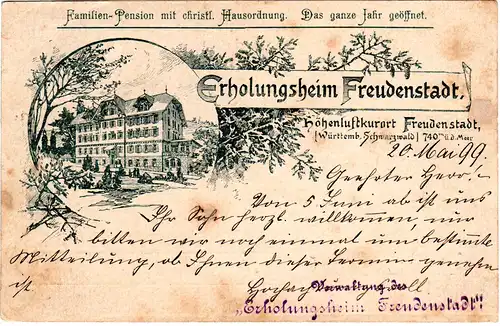 Familien-Pension mit christl. Hausordnung. Das ganze Jahr geöffnet.
Erholungsheim Freudenstadt,
Höhenluftkurort Freudenstadt,
(Württemb. Schwarzwald) 740 m ü.d. Meer
20. Mai 99.
Geehrter Herr.
Von 5 Juni ab ist uns
Ihr Sohn herzl. willkommen, nur
bitten wir noch einmal um bestimmte
Mitteilung, ob Ihnen dieser Termin genehm
ist.
Verwaltung des
„Erholungsheim Freudenstadt"!